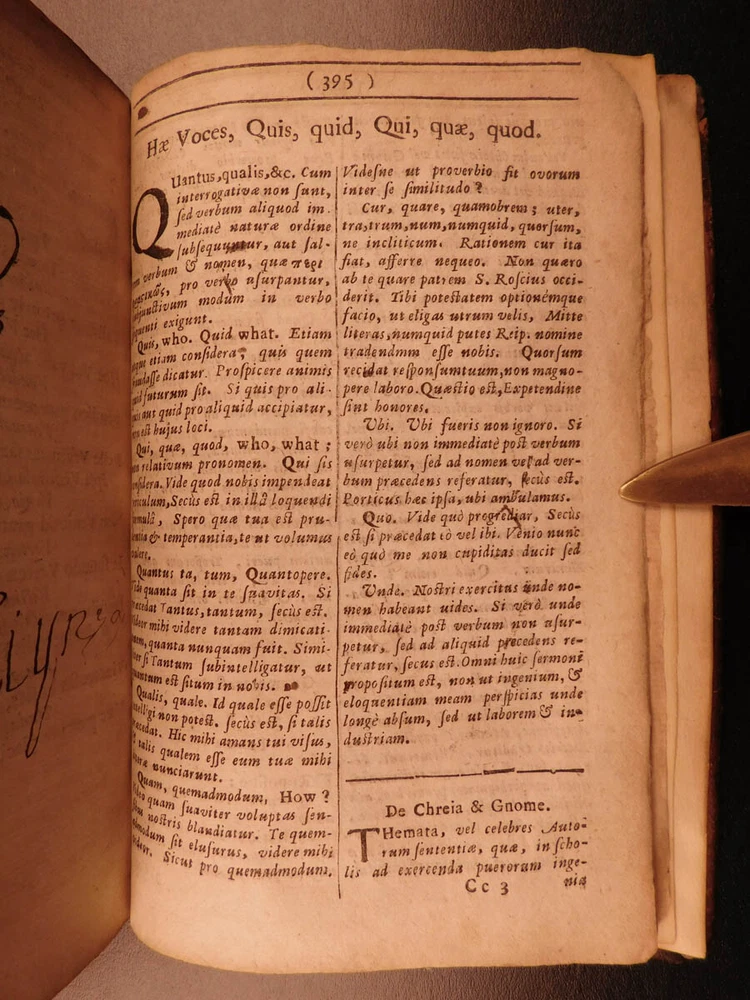 ( 395 )
Hæ Voces, Quis, quid, Qui, quæ, quod.
QUantus, qualis, &c. Cum
interrogativæ non ſunt,
ſed verbum aliquod im-
mediatè naturæ ordine
ſubſequuntur, aut ſal-
verbum & nomen, quæ περι
pro verbo uſurpantur,
modum in verbo
exigunt.
Quis, who. Quid what. Etiam
etiam conſidera, quis quem
dicatur. Proſpicere animis
futurum ſit. Si quis pro ali-
aut quid pro aliquid accipiatur,
eſt hujus loci.
Qui, quæ, quod, who, what;
relativum pronomen. Qui ſis
Vide quod nobis impendeat
Secùs eſt in illâ loquendi
Spero quæ tua eſt pru-
& temperantia, te ut volumus
Quantus ta, tum, Quantopere.
quanta ſit in te ſuavitas. Si
Tantus, tantum, ſecùs eſt.
mihi videre tantam dimicati-
quanta nunquam fuit. Simi-
ſi Tantum ſubintelligatur, ut
eſt ſitum in nobis.
Qualis, quale. Id quale eſſe poſſit
non poteſt. ſecùs eſt, ſi talis
Hic mihi amans tui viſus,
talis qualem eſſe eum tuæ mihi
nunciarunt.
Quam, quemadmodum, How?
quam ſuaviter voluptas ſen-
noſtris blandiatur. Te quem-
ſit eluſurus, videre mihi
Sicut pro quemadmodum.
Videſne ut proverbio ſit ovorum
inter ſe ſimilitudo?
Cur, quare, quamobrem; uter,
tra, trum, num, numquid, quorſum,
ne incliticum. Rationem cur ita
fiat, afferre nequeo. Non quæro
ab te quare patrem S. Roſcius occi-
derit. Tibi poteſtatem optionémque
facio, ut eligas utrum velis, Mitte
literas, numquid putes Reip. nomine
tradendmm eſſe nobis. Quorſum
recidat reſponſum tuum, non magno-
pere laboro. Quæſtio eſt, Expetendine
ſint honores.
Ubi. Ubi fueris non ignoro. Si
verò ubi non immediatè poſt verbum
uſurpetur, ſed ad nomen vel ad ver-
bum præcedens referatur, ſecùs est.
Porticus hæc ipſa, ubi ambulamus.
Quo. Vide quò progrediar, Secùs
est ſi præcedat eò vel ibi. Venio nunc
eò quò me non cupiditas ducit ſed
fides.
Unde. Noſtri exercitus unde no-
men habeant uides. Si verò unde
immediatè poſt verbum non uſur-
petur, ſed ad aliquid precedens re-
feratur, ſecus est. Omni huic ſermoni
propoſitum est, non ut ingenium, &
eloquentiam meam perſpicias unde
longè abſum, ſed ut laborem & in-
duſtriam.
De Chreia & Gnome.
THemata, vel celebres Auto-
rum ſententiæ, quæ, in ſcho-
lis ad exercenda puerorum inge-
Cc 3 nia